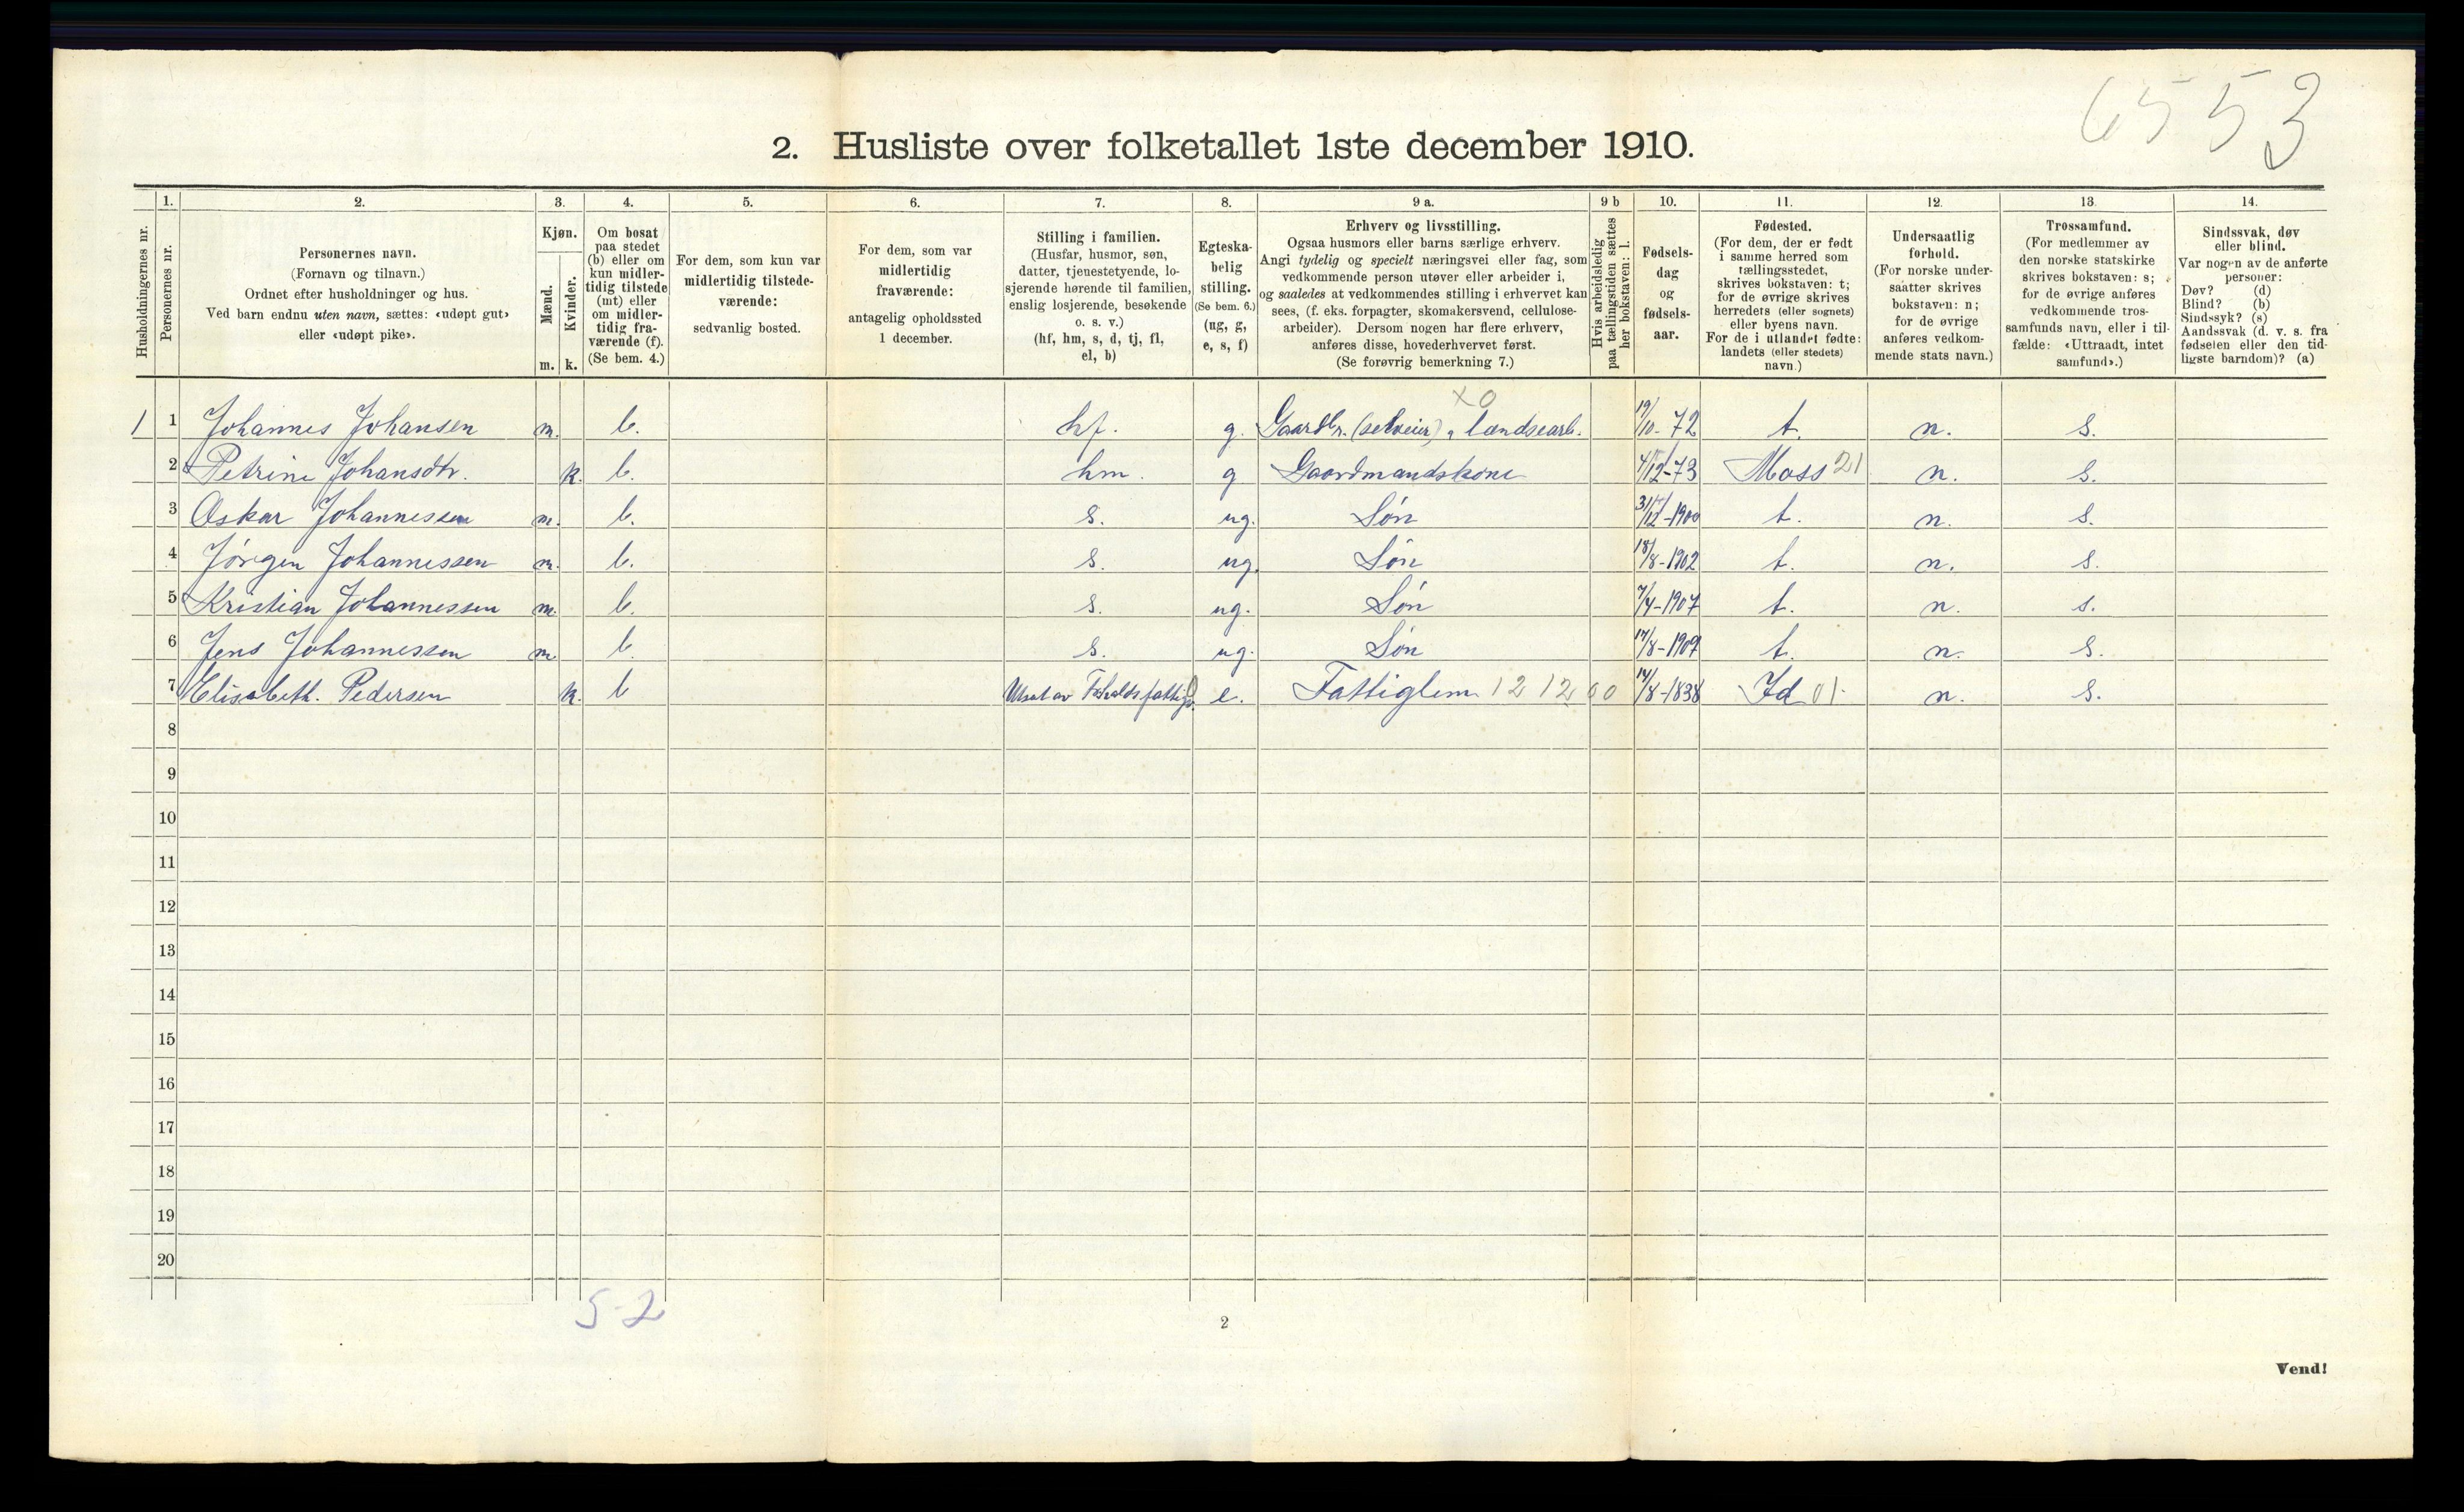 6553
2. Husliste over folketallet 1ste december 1910.
1. 2. 3. 4. 5. 6. 7. 8. 9 a. 9 b 10. 11. 12. 13. 14.
Husholdningernes nr.
Personernes nr.
Personernes navn.
(Fornavn og tilnavn.)
Ordnet efter husholdninger og hus.
Ved barn endnu uten navn, sættes: «udøpt gut»
eller «udøpt pike».
Kjøn.
Mænd.
Kvinder.
m. k.
Om bosat
paa stedet
(b) eller om
kun midler-
tidig tilstede
(mt) eller
om midler-
tidig fra-
værende (f).
(Se bem. 4.)
For dem, som kun var
midlertidig tilstede-
værende:
sedvanlig bosted.
For dem, som var
midlertidig
fraværende:
antagelig opholdssted
1 december.
Stilling i familien.
(Husfar, husmor, søn,
datter, tjenestetyende, lo-
sjerende hørende til familien,
enslig losjerende, besøkende
o. s. v.)
(hf, hm, s, d, tj, fl,
el, b)
Egteska-
belig
stilling.
(Se bem. 6.)
(ug, g,
e, s, f)
Erhverv og livsstilling.
Ogsaa husmors eller barns særlige erhverv.
Angi tydelig og specielt næringsvei eller fag, som
vedkommende person utøver eller arbeider i,
og saaledes at vedkommendes stilling i erhvervet kan
sees, (f. eks. forpagter, skomakersvend, cellulose-
arbeider). Dersom nogen har flere erhverv,
anføres disse, hovederhvervet først.
(Se forøvrig bemerkning 7.)
Hvis arbeidsledig
paa tællingstiden sættes
her bokstaven: l.
Fødsels-
dag
og
fødsels-
aar.
Fødested.
(For dem, der er født
i samme herred som
tællingsstedet,
skrives bokstaven: t;
for de øvrige skrives
herredets (eller sognets)
eller byens navn.
For de i utlandet fødte:
landets (eller stedets)
navn.)
Undersaatlig
forhold.
(For norske under-
saatter skrives
bokstaven: n;
for de øvrige
anføres vedkom-
mende stats navn.)
Trossamfund.
(For medlemmer av
den norske statskirke
skrives bokstaven: s;
for de øvrige anføres
vedkommende tros-
samfunds navn, eller i til-
fælde: «Uttraadt, intet
samfund».)
Sindssvak, døv
eller blind.
Var nogen av de anførte
personer:
Døv? (d)
Blind? (b)
Sindssyk? (s)
Aandssvak (d. v. s. fra
fødselen eller den tid-
ligste barndom)? (a)
x0
1 1 Johannes Johansen m. b. hf. g. Gaardbr. (selveier) landsearb. 19/10-72 t. n. s.
2 Petrine Johansdtr. k. b. hm. g Gaardmandskone 4/12-73 Moss 21 n. s.
3 Oskar Johannessen m. b. s. ug. Søn 31/12-1900 t. n. s.
4 Jørgen Johannessen m. b. s. ug. Søn 18/8-1902 t. n. s.
5 Kristian Johannessen m. b. s. ug. Søn 7/4-1907 t. n. s.
6 Jens Johannessen m b. s. ug. Søn 17/8-1909 t. n. s.
7 Elisabeth. Pedersen k. b e. Fattiglem 12 12 00 14/8-1838 Id 01 n. s.
8
9
10
11
12
13
14
15
16
17
18
19
20
5-2
2
Vend!